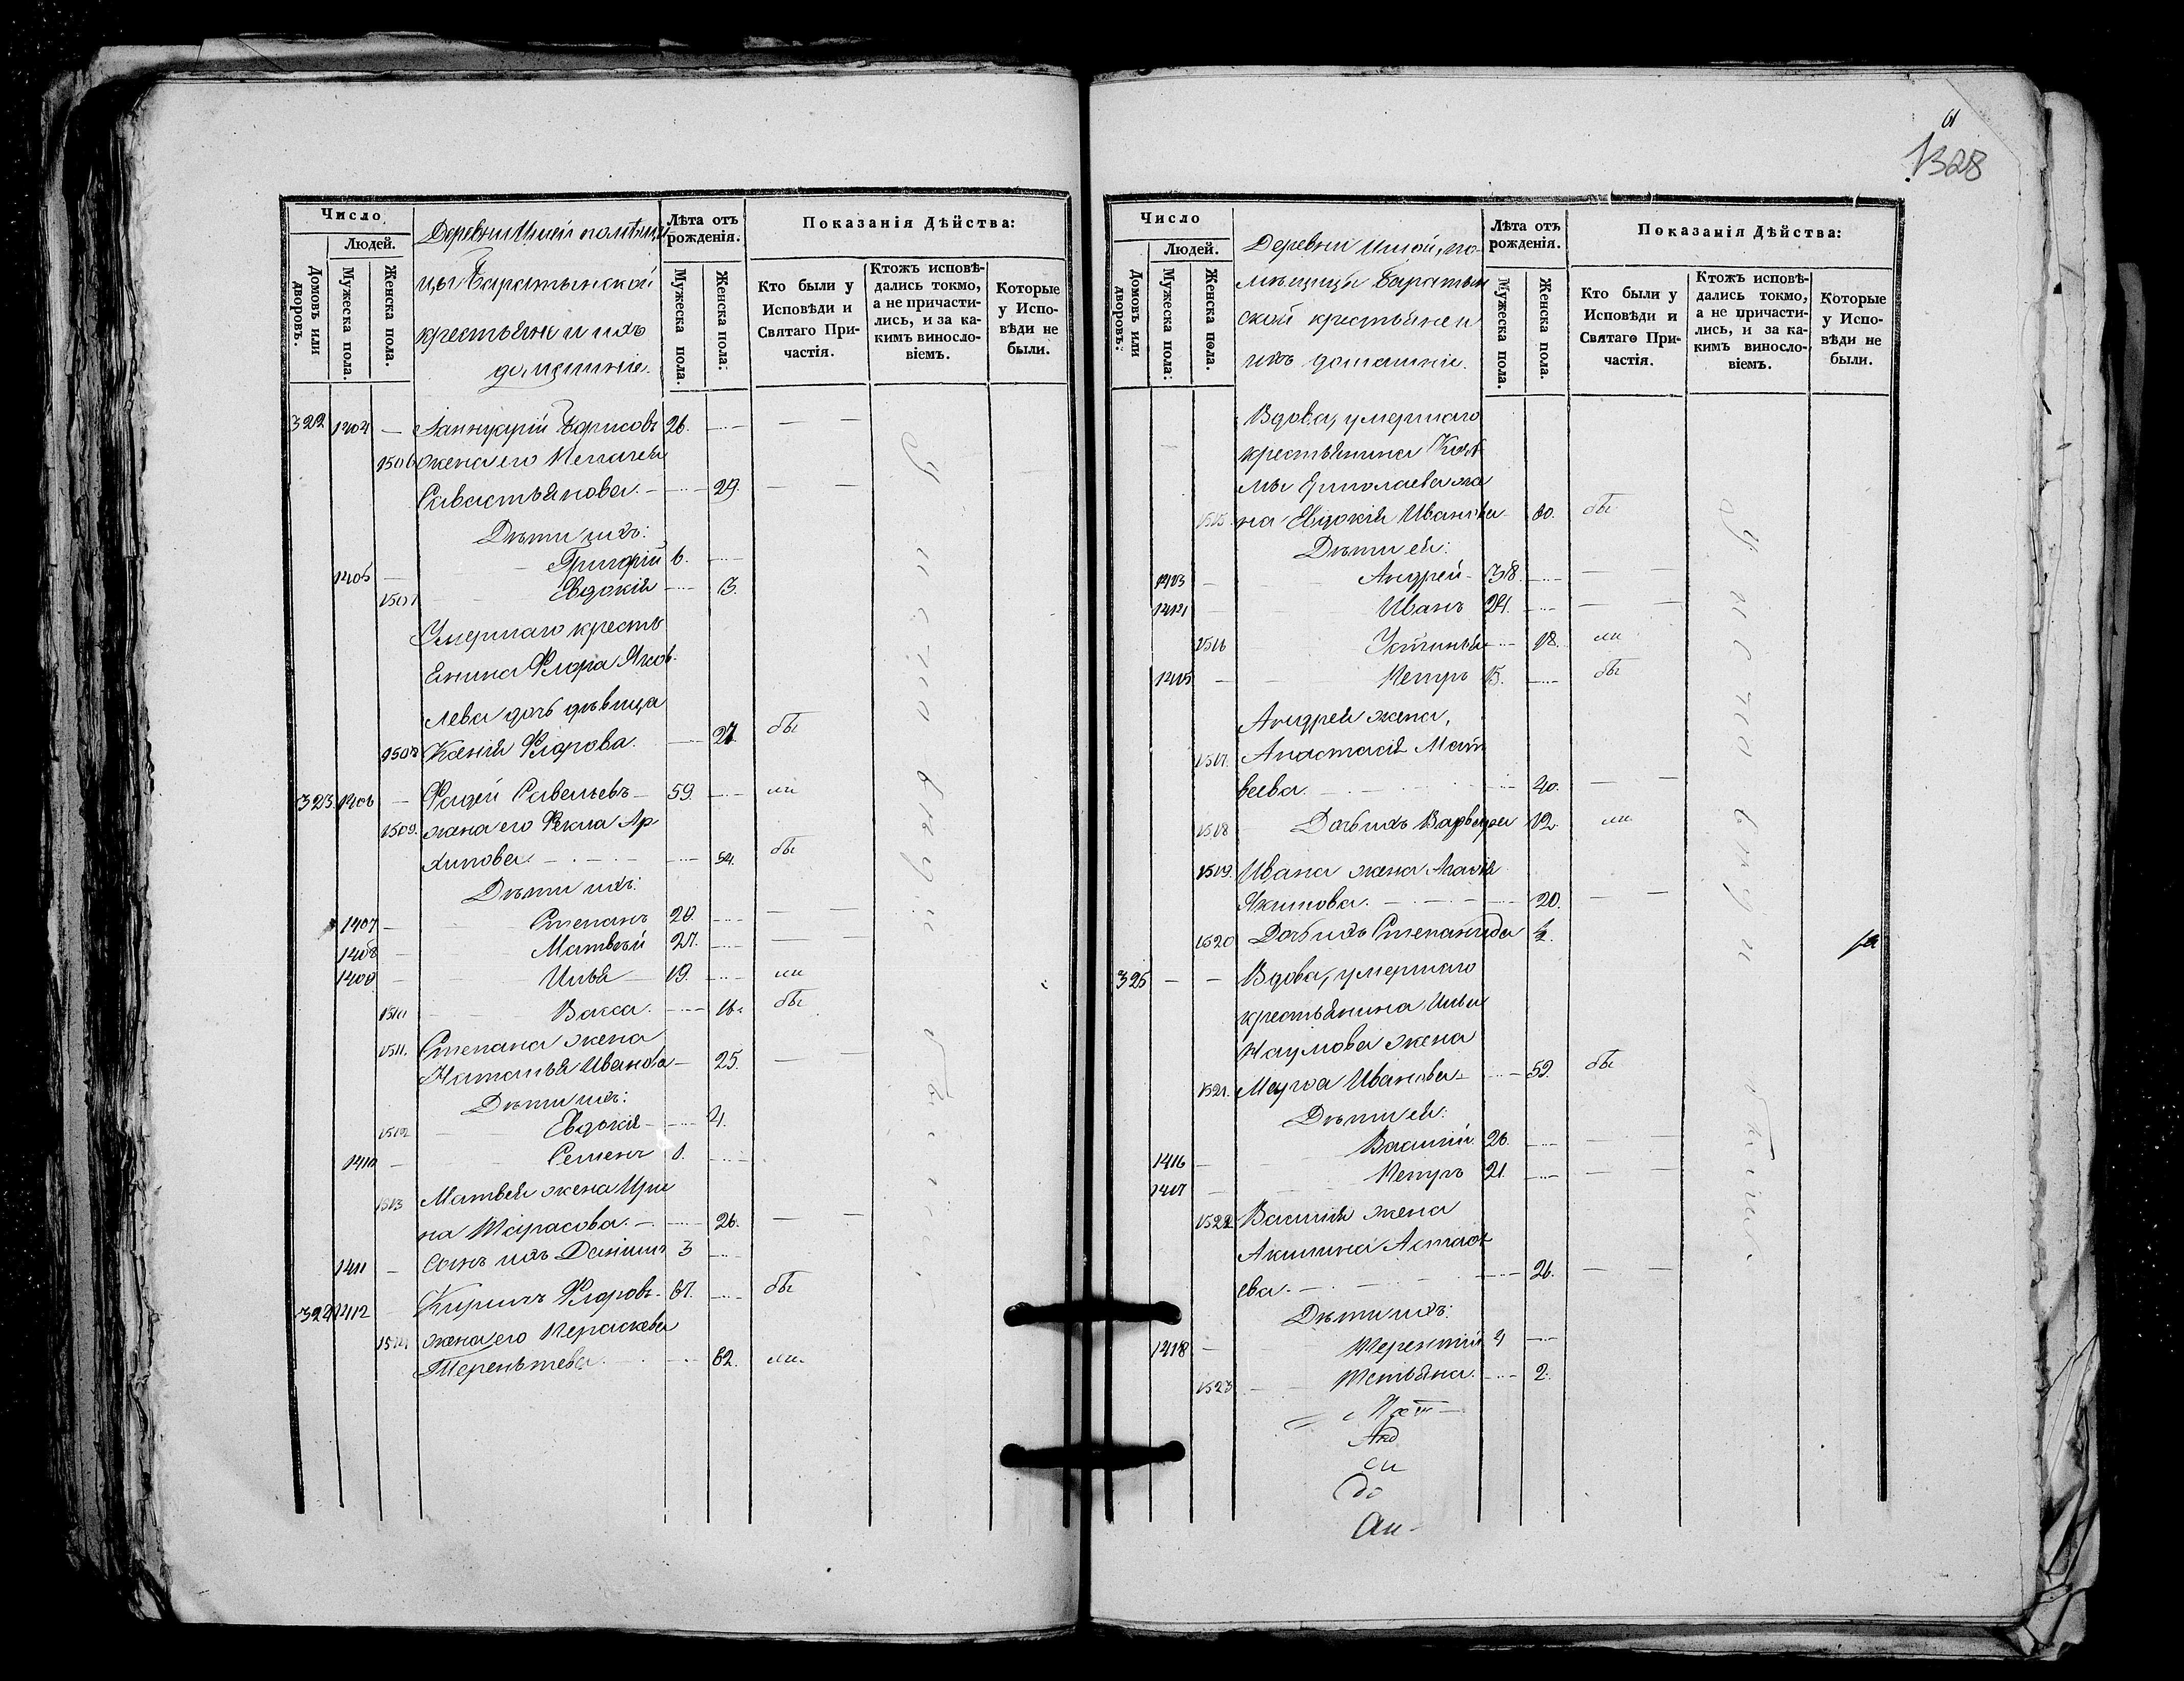 Число
Людей.
Домовъ или дворовъ.
Мужеска пола.
Женска пола.
крестьяне и ихъ
домашніе.
Лѣта отъ рожденія.
Мужеска пола.
Женска пола.
Показанія Дѣйства:
Кто были у Исповѣди и Святаго Причастія.
Ктожъ исповѣдались токмо, а не причастились, и за какимъ винословіемъ.
Которые у Исповѣди не были.
322 1404 — Іаннуарій Борисовъ 26.
1506 жена его Пелагея
Савастьянова. — 29.
Дѣти ихъ:
1405 — Григорій 6.
1507 Евдокія 3.
Умершаго кресть
янина Флора Яков
лева дочь дѣвица
1508 Ксенія Флорова. 27. бы
323 1406 — Фадей Савельевъ — 59. ли
1509. жена его Фекла Ар
хипова. 54. бы
Дѣти ихъ:
1407 — Степанъ 28.
1408 — Матвѣй 27.
1409 — Илья 19. ли
1510 Васса. 16. бы
1511. Степана жена
Наталья Иванова — 25.
Дѣти ихъ:
1512 Евдокія 4.
1410 — Семенъ 1.
1513 Матвея жена Ири
на Тарасова. — 26.
1411 — Сынъ ихъ Даніилъ 3
324 1412 — Кирилъ Флоровъ 67. бы
1514 жена его Параскева
Терентьева. 62. ли
61
1328
Число
Людей.
Домовъ или дворовъ.
Мужеска пола.
Женска пола.
Деревни Иной, по
мѣщицы Баратын
ской крестьяне и
ихъ домашніе.
Лѣта отъ рожденія.
Мужеска пола.
Женска пола.
Показанія Дѣйства:
Кто были у Исповѣди и Святаго Причастія.
Ктожъ исповѣдались токмо, а не причастились, и за какимъ винословіемъ.
Которые у Исповѣди не были.
Вдова, умершаго
крестьянина Козь
мы Ермолаева же
1515. на Евдокія Иванова 60. бы
Дѣти ея:
1413 — Андрей — 38.
1414 Иванъ 24.
1516 Устинья 18. ли
1415 — Петръ 15. бы
Андрея жена,
1517. Анастасія Мат
веева. 40.
1518 Дочь ихъ Варвара 12. ли
1519. Ивана жена Агафія
Якимова. 20.
1520 Дочь ихъ Степанида ½.
325 — — Вдова, умершаго
крестьянина Ильи
Наумова жена
1521. Марфа Иванова 59. бы
Дѣти ея:
1416 — Василій 26.
1417 — Петръ 21.
1522 Василія жена
Акилина Астафь
ева. 26.
Дѣти ихъ:
1418 — Терентій 4
1523 Татьяна. 2.